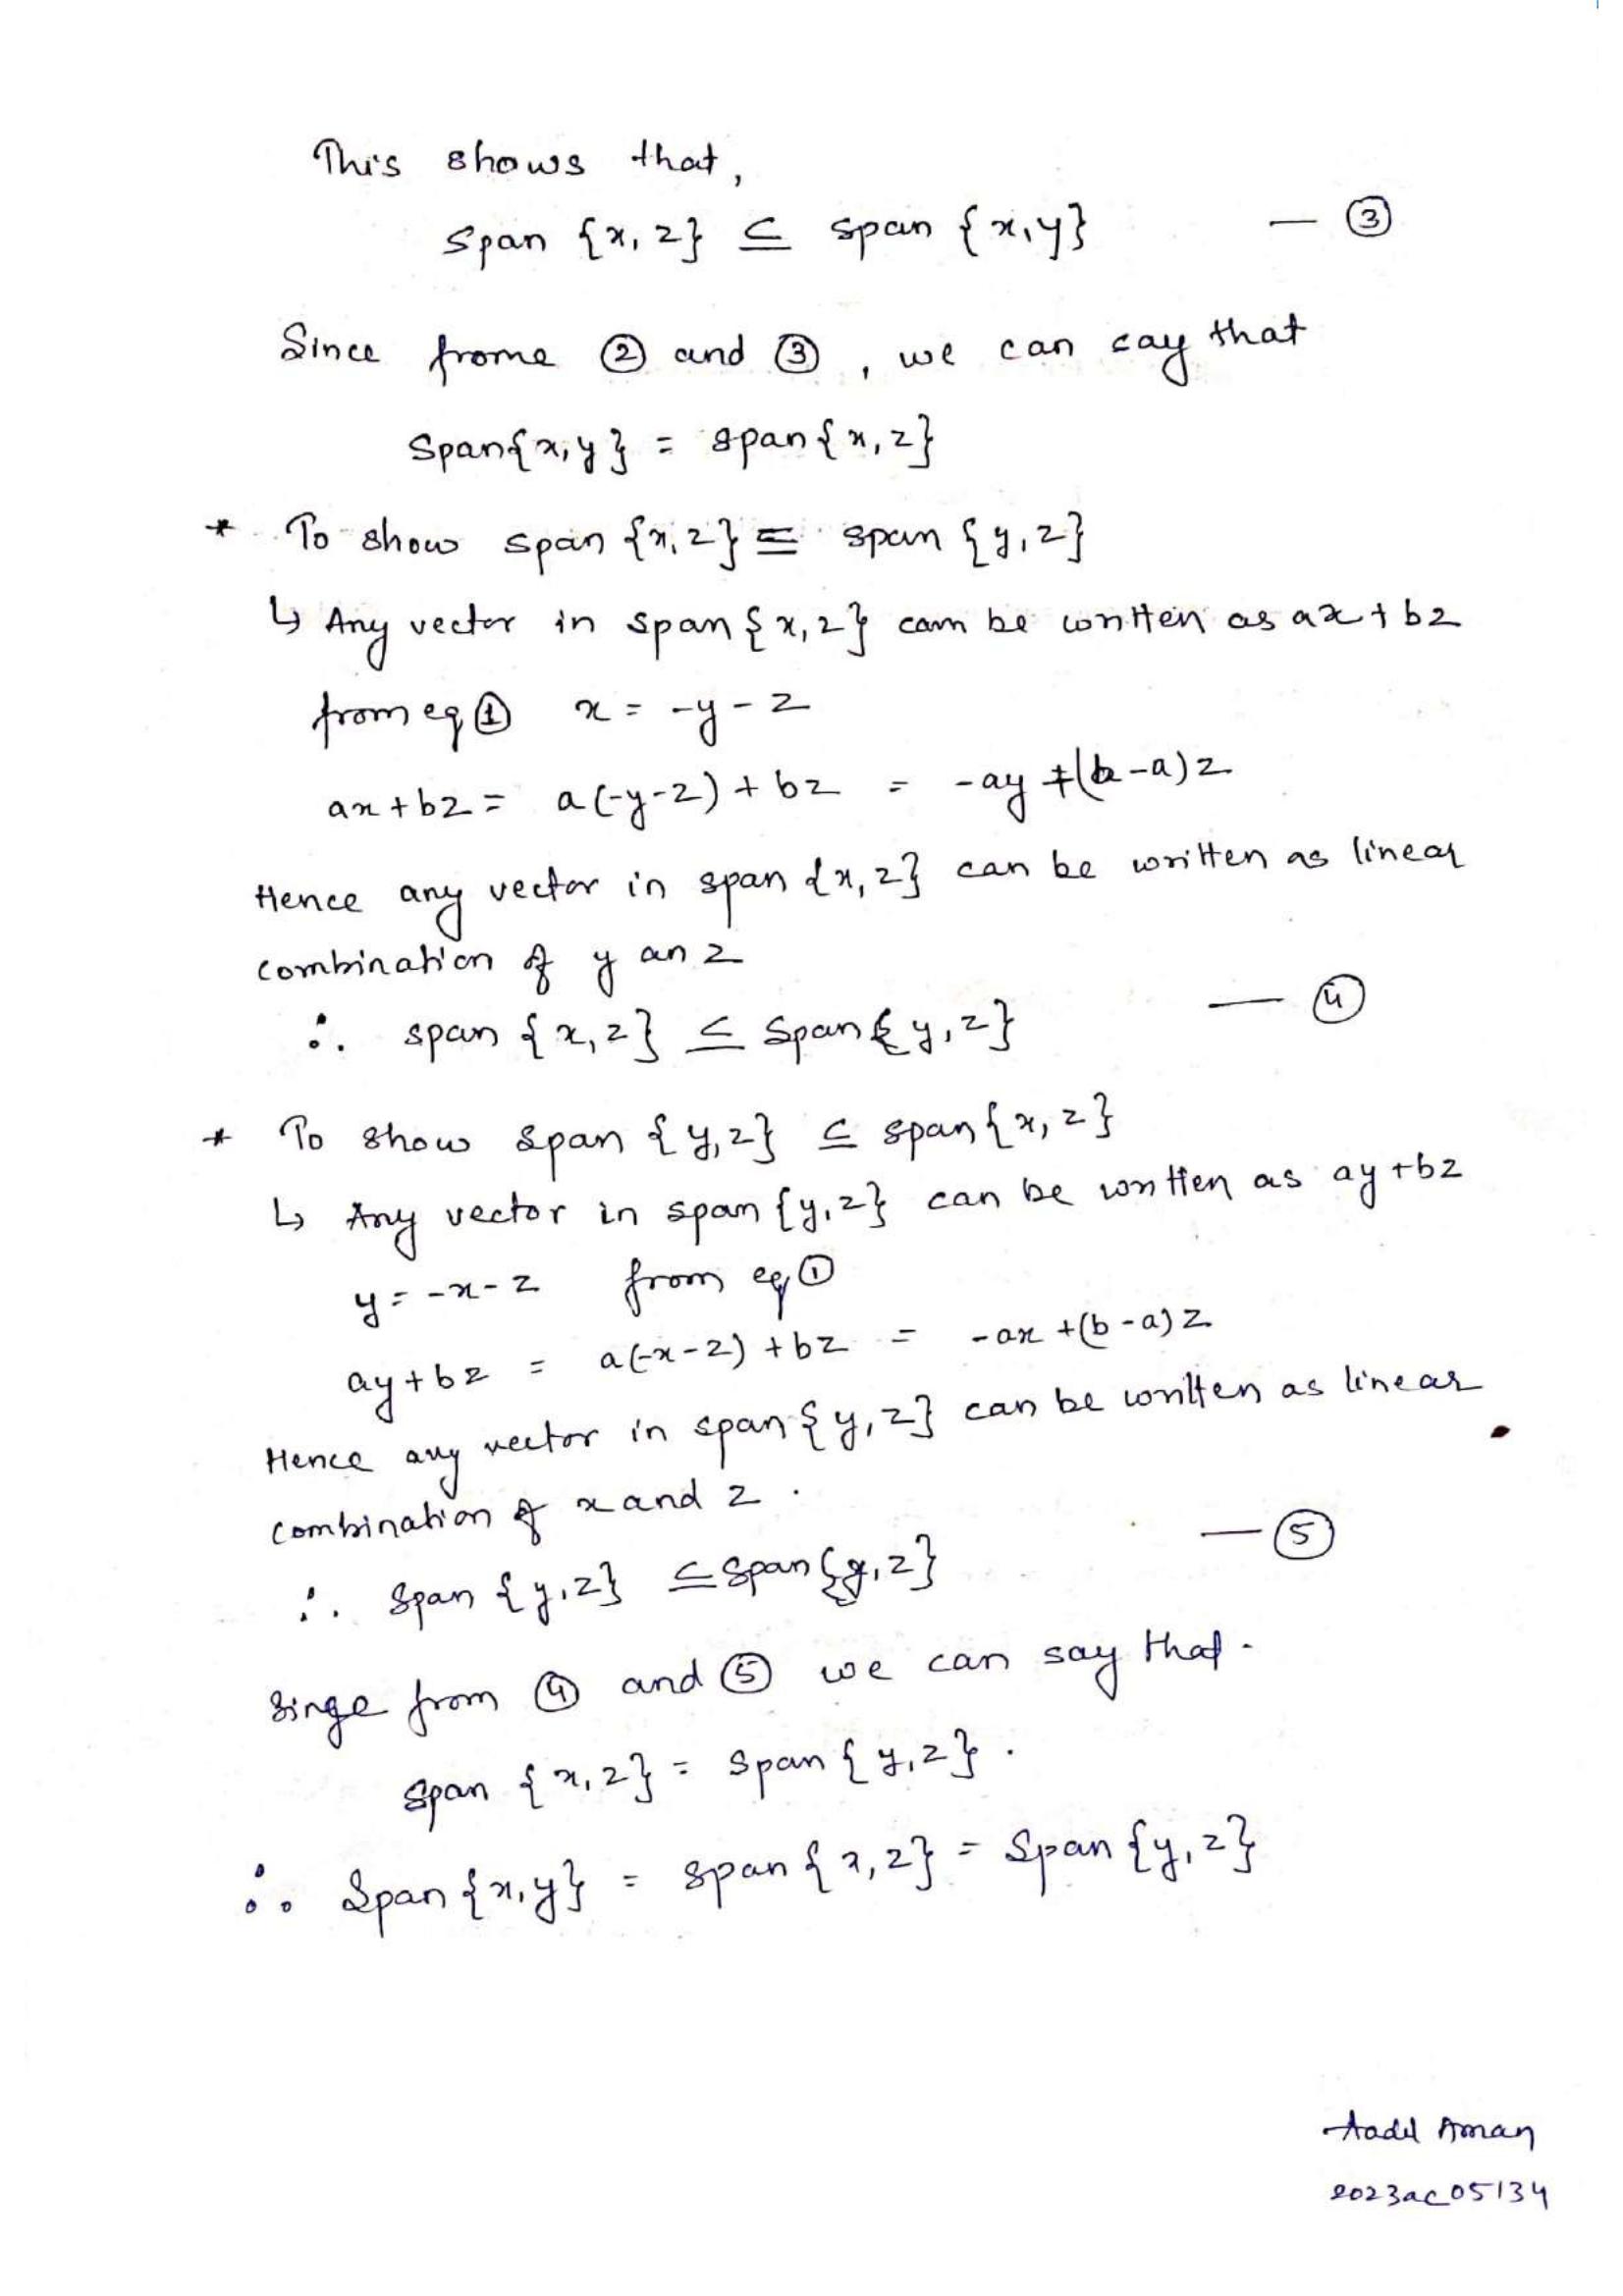 This shows that,
span {x, z} ⊆ span {x, y} — ③
Since frome ② and ③, we can say that
Span{x, y} = span{x, z}
* To show span {x, z} ⊆ span {y, z}
↳ Any vector in span {x, z} can be written as ax + bz
from eq ① x = -y - z
ax + bz = a(-y-z) + bz = -ay + (b-a)z
Hence any vector in span {x, z} can be written as linear
combination of y an z
∴ span {x, z} ⊆ Span{y, z} — ④
* To show span {y, z} ⊆ span{x, z}
↳ Any vector in span {y, z} can be written as ay + bz
y = -x - z from eq ①
ay + bz = a(-x-z) + bz = -ax + (b-a)z
Hence any vector in span {y, z} can be written as linear
combination of x and z.
∴ span {y, z} ⊆ span{y, z} — ⑤
Singe from ④ and ⑤ we can say that.
span {x, z} = span {y, z}.
∴ Span {x, y} = span {x, z} = Span {y, z}
Aadil Aman
2023ac05134